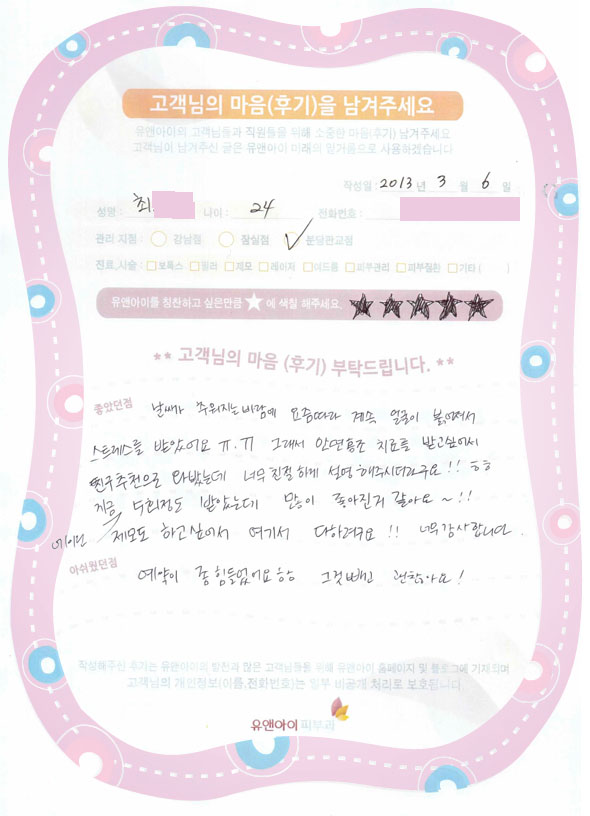 고객님의 마음(후기)을 남겨주세요
유앤아이의 고객님들과 직원들을 위해 소중한 마음(후기) 남겨주세요
고객님이 남겨주신 글은 유앤아이 미래의 밑거름으로 사용하겠습니다
작성일 : 2013 년 3 월 6 일
성명 : 최 나이 : 24 전화번호 :
관리 지점 : 강남점 잠실점 분당판교점
진료,시술 : 보톡스 필러 제모 레이저 여드름 피부관리 피부질환 기타 ( )
유앤아이를 칭찬하고 싶은만큼 ★ 에 색칠 해주세요 ★★★★★
** 고객님의 마음 (후기) 부탁드립니다. **
좋았던점 날씨가 추워지는 바람에 요즘따라 계속 얼굴이 붉어져서
스트레스를 받았어요 ㅠ.ㅠ 그래서 안면홍조 치료를 받고싶어서
친구추천으로 와봤는데 너무 친절하게 설명해주시더라구요!! ㅎㅎ
지금 5회정도 받았는데 많이 좋아진거 같아요~!!
레이저 제모도 하고싶어서 여기서 다하려구요!! 너무감사합니다
아쉬웠던점 예약이 좀 힘들었어요ㅎㅎ 그것빼곤 괜찮아요!
작성해주신 후기는 유앤아이의 발전과 많은 고객님들을 위해 유앤아이 홈페이지 및 블로그에 기재되며
고객님의 개인정보(이름,전화번호)는 일부 비공개 처리로 보호됩니다
유앤아이 피부과